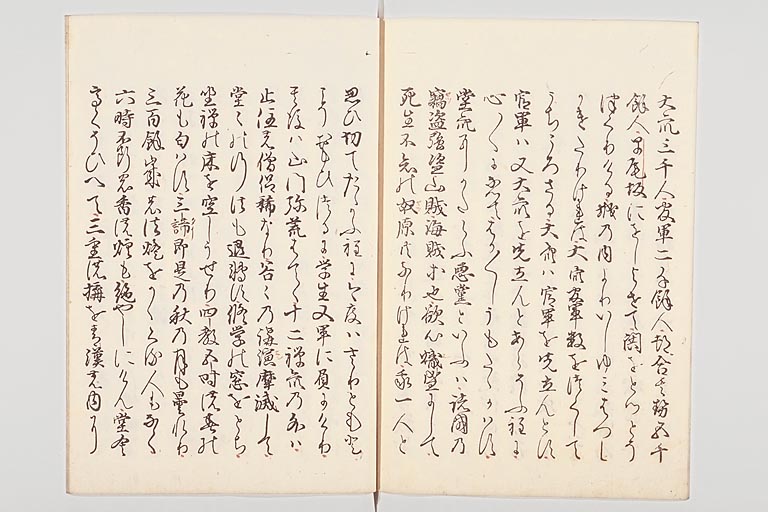 大衆三千人官軍二千餘人都合其勢五千
餘人早尾坂にをしよせて閧をとつとつ
くりける城の内よりいしゆみはつし
かけたりけれは大衆官軍数を尽して
うちころさる大衆は官軍を先立んとす
官軍は又大衆を先立んとあらそふ程に
心〳〵にてはか〳〵しうもたゝかはす
堂衆にかたらふ悪党といふは諸国の
竊盗強盗山賊海賊等也欲心熾盛にして
死生不知の奴原なりけれは我一人と
思ひ切てたゝかふ程に今度はさりともと
おもひつるに学生又軍に負にけり
其後は山門弥荒はてゝ十二禅衆の外は
止住の僧侶稀なり谷々の講演摩滅して
堂〻の行法も退転す修学の窓をとち
坐禅の床を空しうせり四教五時の春の
花も匂はす三諦即是の秋の月も曇れり
三百餘歳の法燈をかゝくる人もなく
六時不断の香の煙も絶やしにけん堂舎
高くそひへて三重の構を青漢の内に